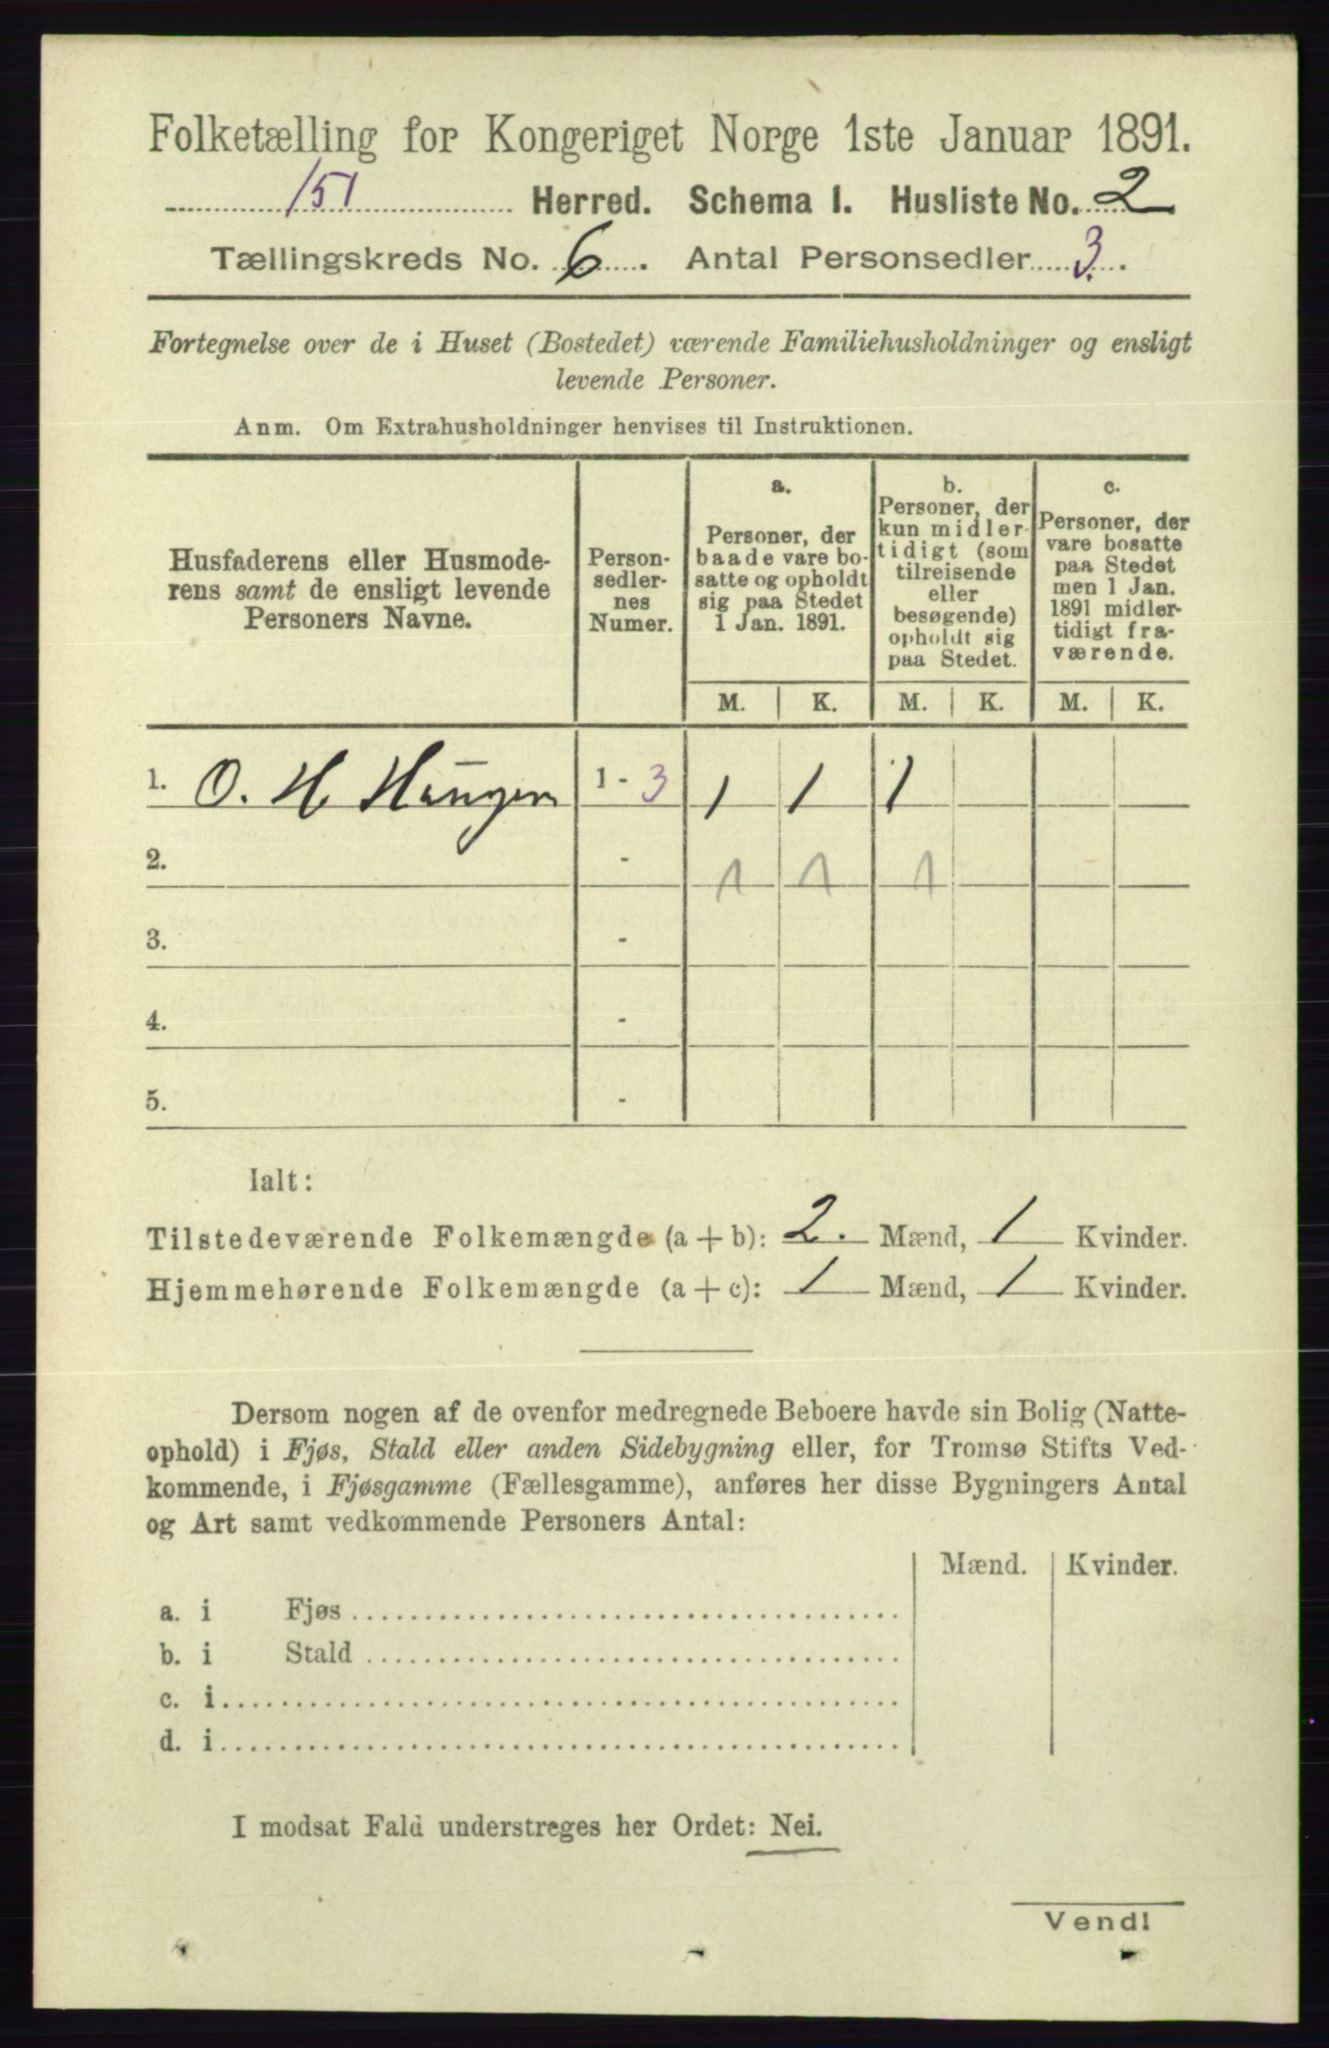 Folketælling for Kongeriget Norge 1ste Januar 1891.
151 Herred. Schema I. Husliste No. 2
Tællingskreds No. 6. Antal Personsedler 3.
Fortegnelse over de i Huset (Bostedet) værende Familiehusholdninger og ensligt
levende Personer.
Anm. Om Extrahusholdninger henvises til Instruktionen.
Husfaderens eller Husmode-
rens samt de ensligt levende
Personers Navne.
Person-
sedler-
nes
Numer.
a.
Personer, der
baade vare bo-
satte og opholdt
sig paa Stedet
1 Jan. 1891.
b.
Personer, der
kun midler-
tidigt (som
tilreisende
eller
besøgende)
opholdt sig
paa Stedet.
c.
Personer, der
vare bosatte
paa Stedet
men 1 Jan.
1891 midler-
tidigt fra-
værende.
M. K. M. K. M. K.
1. O. H Haugen 1 - 3 1 1 1
2. - 1 1 1
3. -
4. -
5. -
Ialt:
Tilstedeværende Folkemængde (a + b): 2. Mænd, 1 Kvinder.
Hjemmehørende Folkemængde (a + c): 1 Mænd, 1 Kvinder.
Dersom nogen af de ovenfor medregnede Beboere havde sin Bolig (Natte-
ophold) i Fjøs, Stald eller anden Sidebygning eller, for Tromsø Stifts Ved-
kommende, i Fjøsgamme (Fællesgamme), anføres her disse Bygningers Antal
og Art samt vedkommende Personers Antal:
Mænd. Kvinder.
a. i Fjøs
b. i Stald
c. i
d. i
I modsat Fald understreges her Ordet: Nei.
Vend!